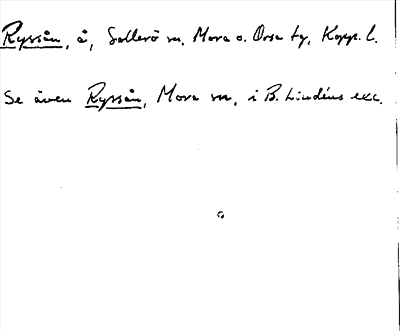 Ryssån, å, Sollerö sn, Mora o. Orsa tg, Kopp. l.
Se även Ryssån, Mora sn, i B. Lindéns exc.